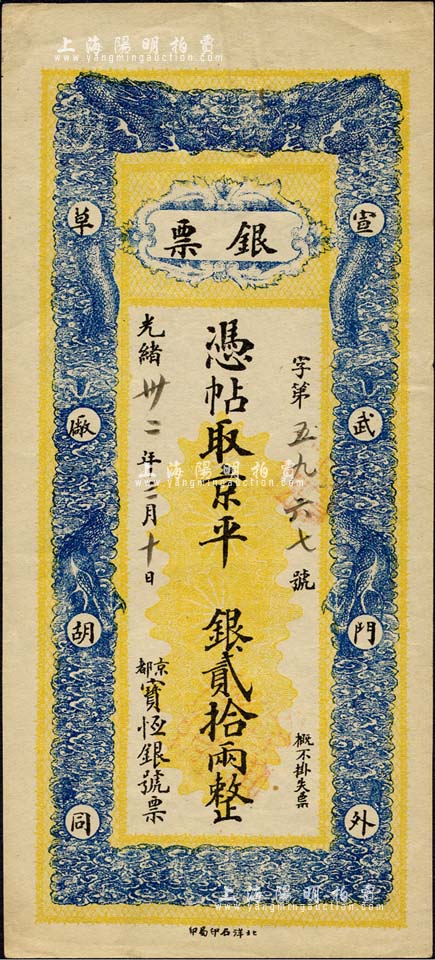 上海陽明拍賣
www.yangmingauction.com
銀票
宣武門外
草廠胡同
字第五九六七號
概不掛失票
憑帖取京平 銀貳拾兩整
光緒卅二年三月十日
京都寶恆銀號票
上海陽明拍賣
www.yangmingauction.com
上海陽明拍賣
www.yangmingauction.com
北洋石印局印